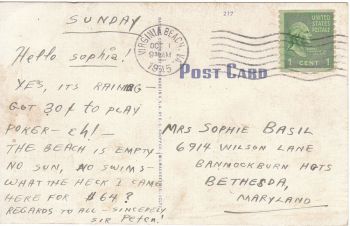 SUNDAY
217
Hello Sophia!
VIRGINIA BEACH, VA.
OCT 1
1945
1 CENT 1
POST CARD
YES, ITS RAINING -
GOT 30¢ TO PLAY
POKER - eh! -
THE BEACH IS EMPTY -
NO SUN, NO SWIMS -
WHAT THE HECK I CAME
HERE FOR $64?
REGARDS TO ALL - SINCERELY
SIR Peter!
MRS SOPHIE BASIL
6914 WILSON LANE
BANNOCKBURN HGTS
BETHESDA,
MARYLAND